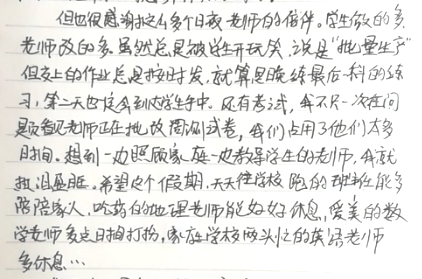 但也很感谢这么多个日夜老师的陪伴。学生做的多,
老师改的多,虽然总是被学生开玩笑,说是“批量生产”
但交上的作业总是按时发,就算是晚练最后一科的练
习,第二天也会到达学生手中。还有考试,我不只一次在问
题看见老师正在批改周测试卷,我们占用了他们太多
时间。想到一边照顾家庭一边教导学生的老师,我就
热泪盈眶。希望这个假期,天天往学校跑的班主任能多
陪陪家人,吃药的地理老师能好好休息,爱美的数
学老师多点时间打扮,家庭学校两头忙的英语老师
多休息…